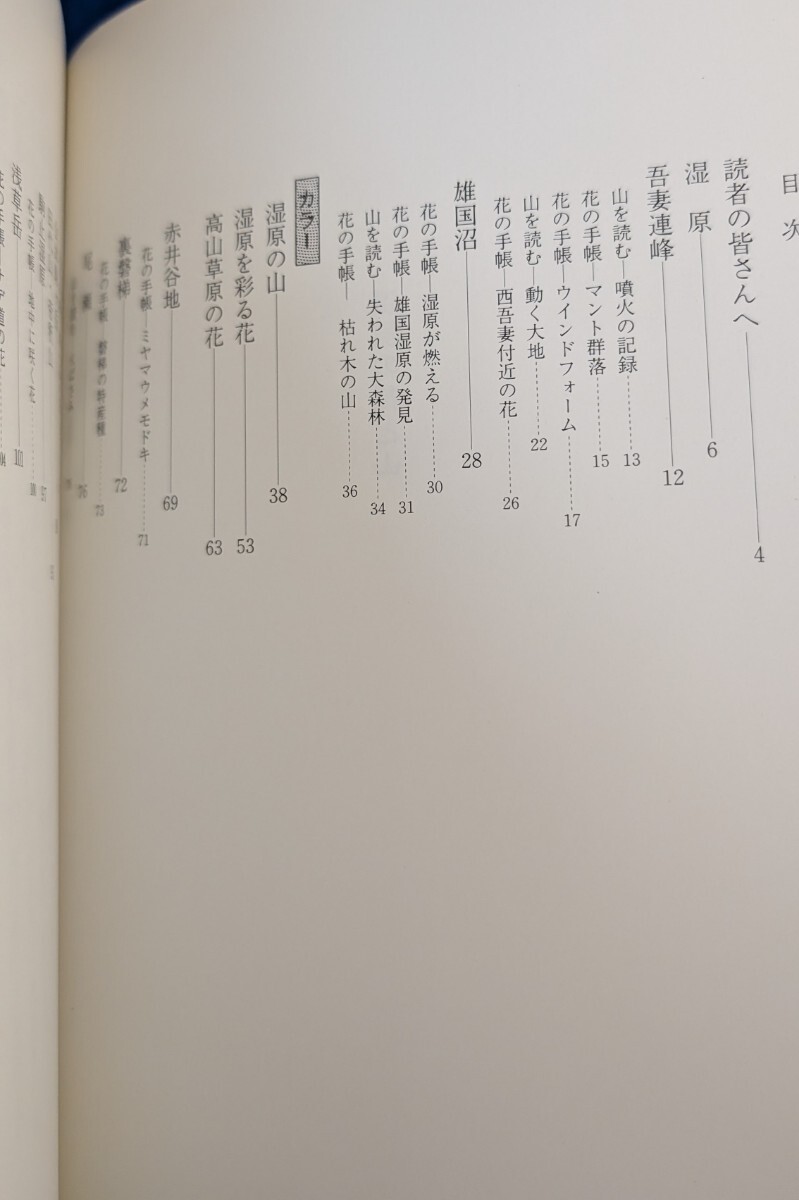 目次
読者の皆さんへ 4
湿原 6
吾妻連峰 12
山を読む―噴火の記録 13
花の手帳―マント群落 15
花の手帳―ウインドフォーム 17
山を読む―動く大地 22
花の手帳―西吾妻付近の花 26
雄国沼 28
花の手帳―湿原が燃える 30
花の手帳―雄国湿原の発見 31
山を読む―失われた大森林 34
花の手帳―枯れ木の山 36
カラー
湿原の山 38
湿原を彩る花 53
高山草原の花 63
赤井谷地 69
花の手帳―ミヤマウメモドキ 71
裏磐梯 72
花の手帳 73
76
97
花の手帳―地中に咲く花
浅草岳 101
花の手帳